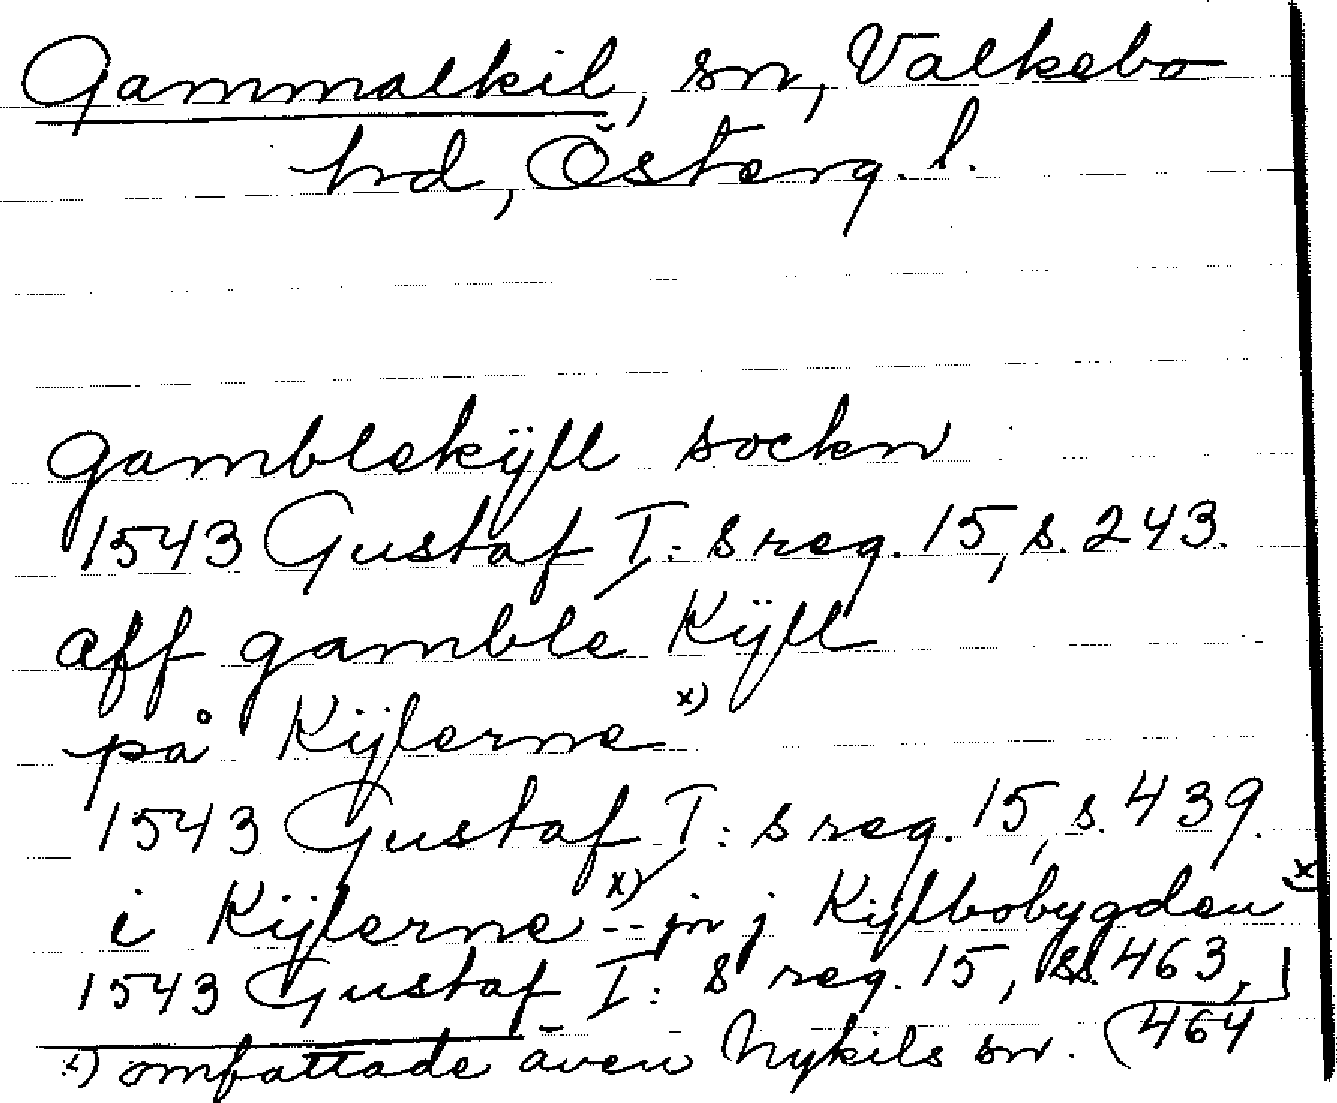 Gammalkil, sn, Valkebo
hd, Österg. l.
gamblekÿll sockn
1543 Gustaf I: s reg. 15, s. 243.
aff gamble Kÿll
på Kÿlerne x)
1543 Gustaf I: s reg. 15, s. 439.
i Kÿlerne x) -- jn j Kÿlbobygden x)
1543 Gustaf I: s reg. 15, ss. 463,
464
x) omfattade även Nykils sn.